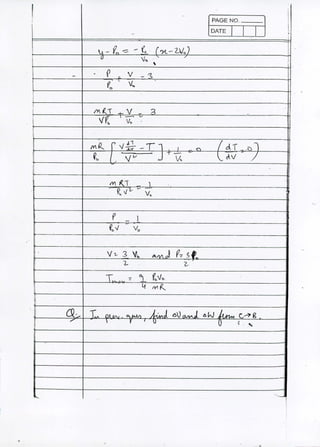 PAGE NO.
DATE
y - P₀ = - P₀/V₀ (x - 2V₀)
P/P₀ + V/V₀ = 3
nRT/VP₀ + V/V₀ = 3
nR/P₀ [ (V dT/dV - T)/V² ] + 1/V₀ = 0 (dT/dV = 0)
nRT/P₀V² = 1/V₀
P/P₀V = 1/V₀
V = 3/2 V₀ and P = 3/2 P₀
Tmax = 9/4 P₀V₀/nR
Q. In prev. ques, find ΔU and ΔW from C→B.